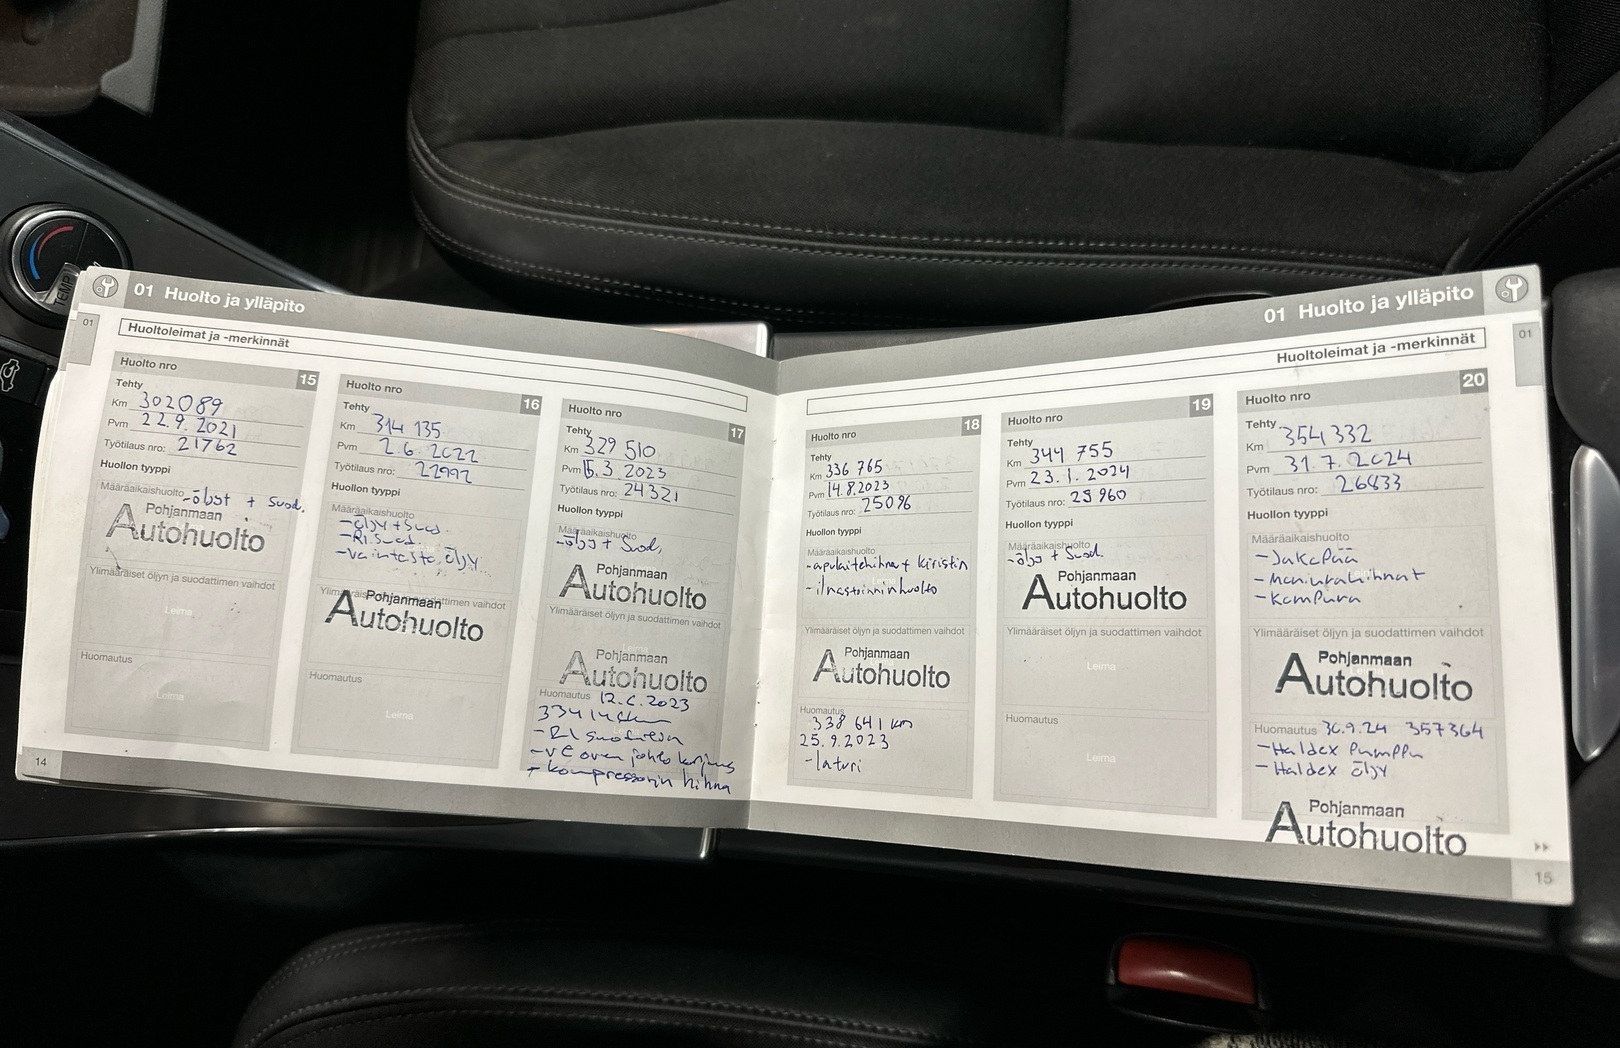 01 Huolto ja ylläpito
01
Huoltoleimat ja -merkinnät
Huolto nro 15
Tehty
Km 302089
Pvm 22.9.2021
Työtilaus nro: 21762
Huollon tyyppi
Määräaikaishuolto
+ suod.
Pohjanmaan
Autohuolto
Ylimääräiset öljyn ja suodattimen vaihdot
Leima
Huomautus
Leima
14
Huolto nro 16
Tehty
Km 314 135
Pvm 2.6.2022
Työtilaus nro: 22992
Huollon tyyppi
Määräaikaishuolto
Pohjanmaan
Autohuolto
Huomautus
Leima
Huolto nro 17
Tehty
Km 329 510
Pvm 15.3.2023
Työtilaus nro: 24321
Huollon tyyppi
Määräaikaishuolto
+ suod,
Pohjanmaan
Autohuolto
Ylimääräiset öljyn ja suodattimen vaihdot
Pohjanmaan
Autohuolto
Huomautus 12.6.2023
-VE oven johto korjaus
+ kompressorin hihna
01 Huolto ja ylläpito
01
Huoltoleimat ja -merkinnät
Huolto nro 18
Tehty
Km 336 765
Pvm 14.8.2023
Työtilaus nro: 25096
Huollon tyyppi
Määräaikaishuolto
-apulaitehihna + kiristin
-ilmastoinninhuolto
Ylimääräiset öljyn ja suodattimen vaihdot
Pohjanmaan
Autohuolto
Huomautus
338 641 km
25.9.2023
-laturi
Huolto nro 19
Tehty
Km 344 755
Pvm 23.1.2024
Työtilaus nro: 25960
Huollon tyyppi
Määräaikaishuolto
+ suod.
Pohjanmaan
Autohuolto
Ylimääräiset öljyn ja suodattimen vaihdot
Leima
Huomautus
Leima
Huolto nro 20
Tehty
Km 354 332
Pvm 31.7.2024
Työtilaus nro: 26833
Huollon tyyppi
Määräaikaishuolto
-Jakopää
-Moniurahihnat
Ylimääräiset öljyn ja suodattimen vaihdot
Pohjanmaan
Autohuolto
Huomautus 30.9.24 357364
-Haldex Pumppu
-Haldex öljy
Pohjanmaan
Autohuolto
15
TEMP